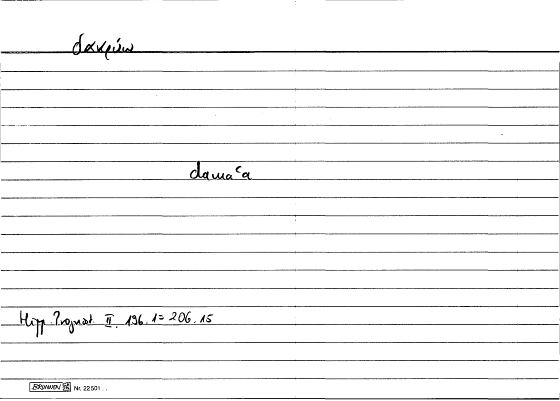 δακρύω
damaʿa
Hipp. Prognost. II. 196.1 = 206.15
BRUNNEN Nr. 22 501